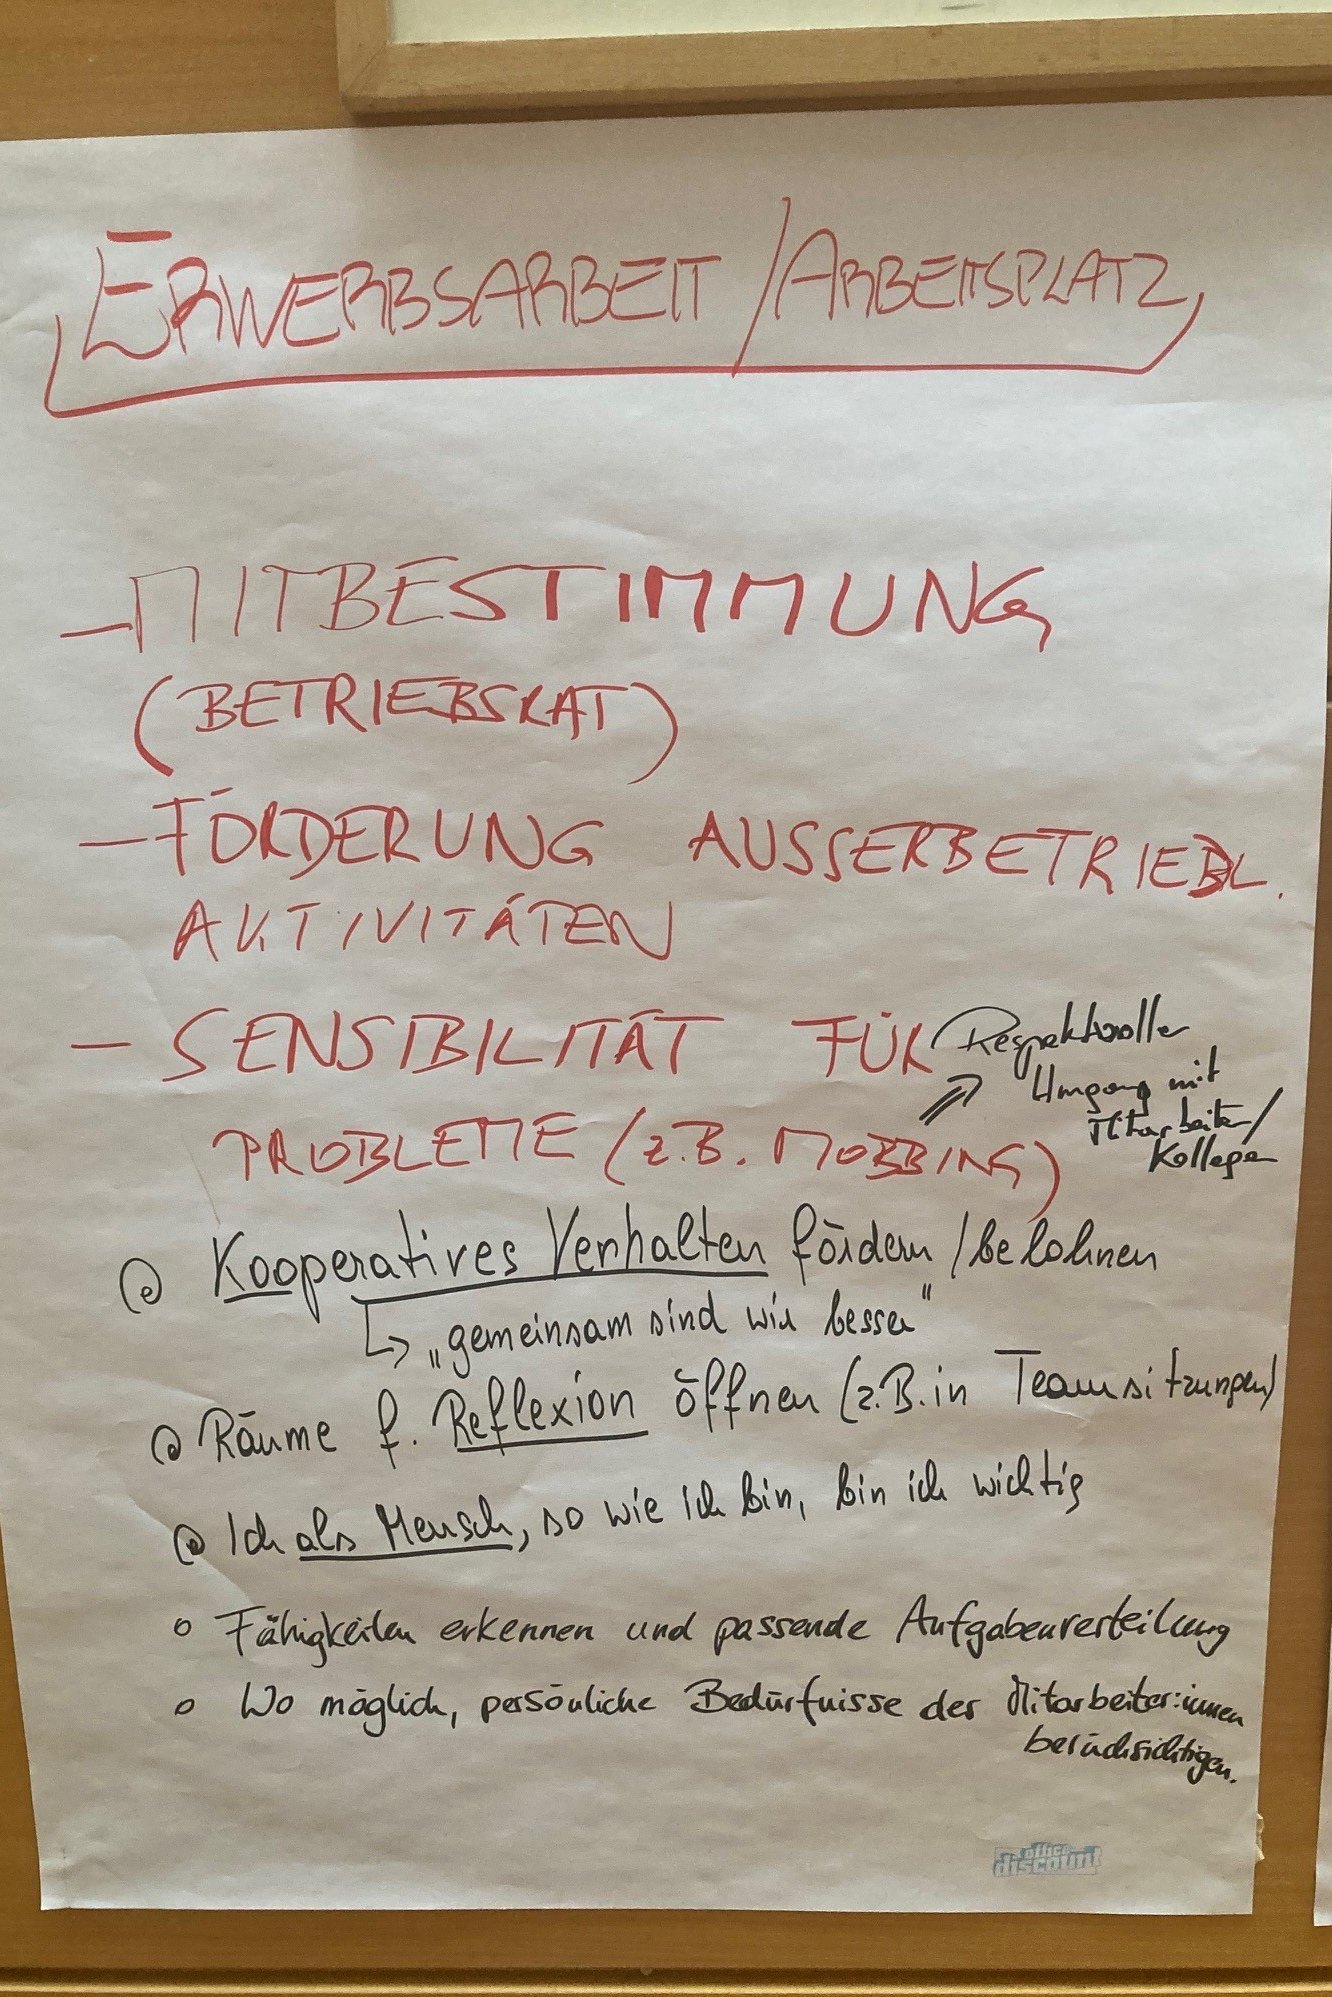 ERWERBSARBEIT / ARBEITSPLATZ
– MITBESTIMMUNG
(BETRIEBSRAT)
– FÖRDERUNG AUSSERBETRIEBL.
AKTIVITÄTEN
– SENSIBILITÄT FÜR
PROBLEME (z.B. MOBBING)
Respektvoller
Umgang mit
Mitarbeiter/
Kollegen
Kooperatives Verhalten fördern / belohnen
↳ „gemeinsam sind wir besser"
Räume f. Reflexion öffnen (z.B. in Teamsitzungen)
Ich als Mensch, so wie ich bin, bin ich wichtig
o Fähigkeiten erkennen und passende Aufgabenverteilung
o Wo möglich, persönliche Bedürfnisse der Mitarbeiter:innen
berücksichtigen.
office
discount